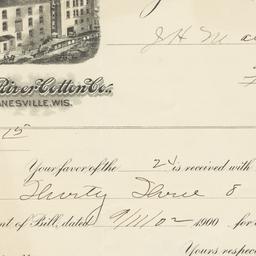 J H M
River Cotton Co.
ANESVILLE, WIS.
15
Your favor of the 24 is received with
Thirty Three 8
nt of Bill, dated 9/11/02 1900 for
Yours respec